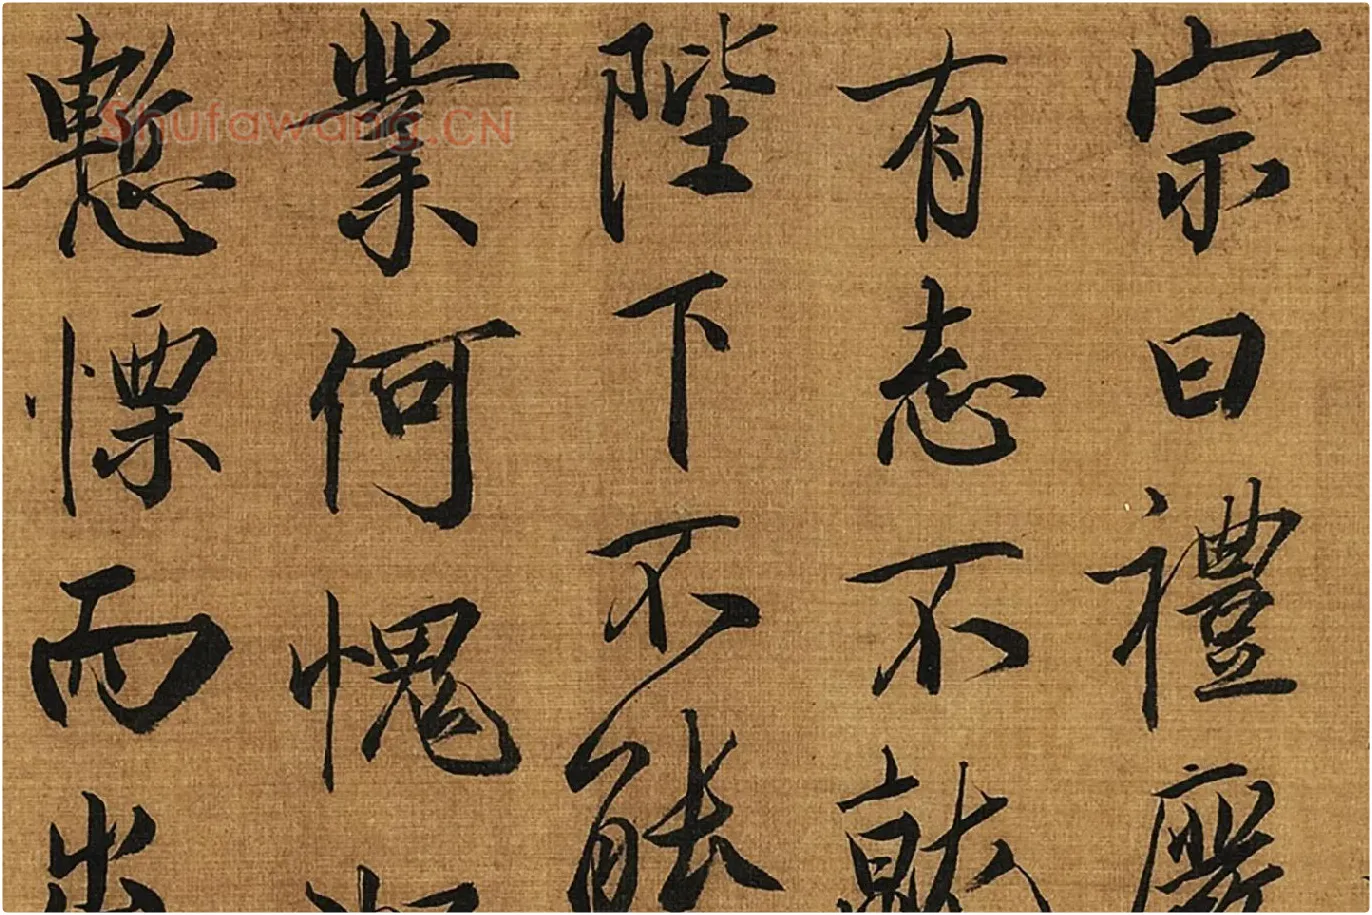 宗曰禮廢
有志不就
陛下不能
業何愧
慙慄而出
Shufawang.CN